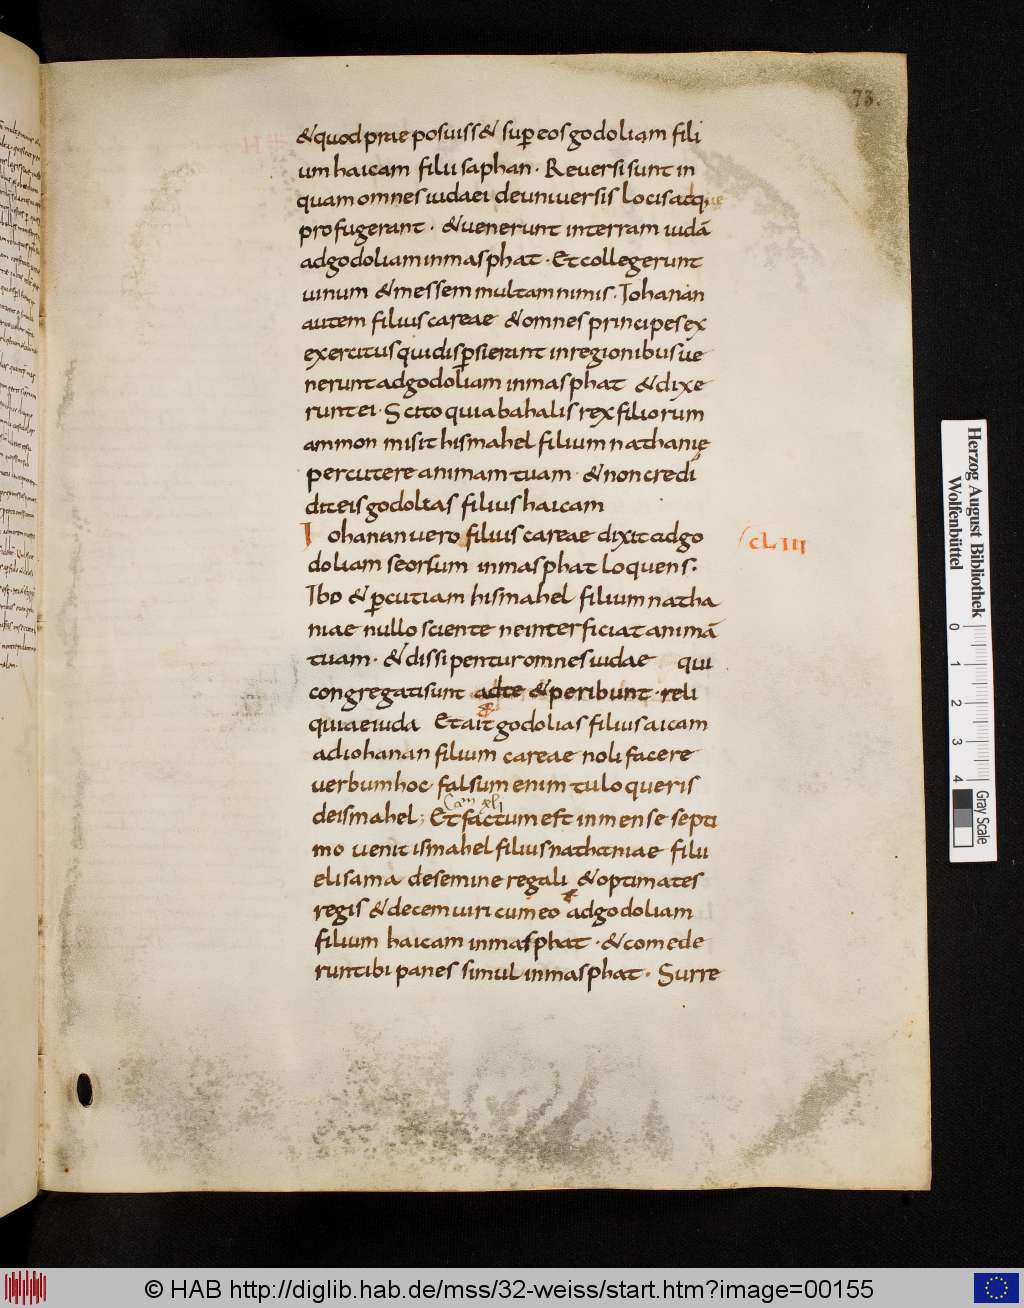 73.
&quod prae posuiss& sup eos godoliam fili
um haicam filii saphan · Reuersi sunt in
quam omnes iudaei deuniuersis locis atq;
profugerant · &uenerunt interram iudā
adgodoliam inmasphat · Et collegerunt
uinum &messem multam nimis · Iohanan
autem filius careae &omnes principes ex
exercitus qui dispsierant inregionibus ue
nerunt adgodoliam inmasphat &dixe
runt ei · Scito quia bahalis rex filiorum
ammon misit hismahel filium nathanię
percutere animam tuam · &non credi
dit eis godolias filius haicam
Iohanan uero filius careae dixit adgo
doliam seorsum inmasphat loquens ·
Ibo &pcutiam hismahel filium natha
niae nullo sciente ne interficiat animā
tuam · &dissipentur omnes iudae qui
congregati sunt adte &peribunt · reli
quiae iuda Et ait godolias filius aicam
ad iohanan filium careae noli facere
uerbum hoc · falsum enim tu loqueris
de ismahel ; Et factum est inmense septi
mo uenit ismahel filius nathaniae filii
elisama desemine regali &optimates
regis &decem uiri cum eo adgodoliam
filium haicam inmasphat · &comede
runt ibi panes simul inmasphat · Surre
cLIII
Cam xli
Herzog August Bibliothek
Wolfenbüttel
0 1 2 3 4
Gray Scale
© HAB http://diglib.hab.de/mss/32-weiss/start.htm?image=00155